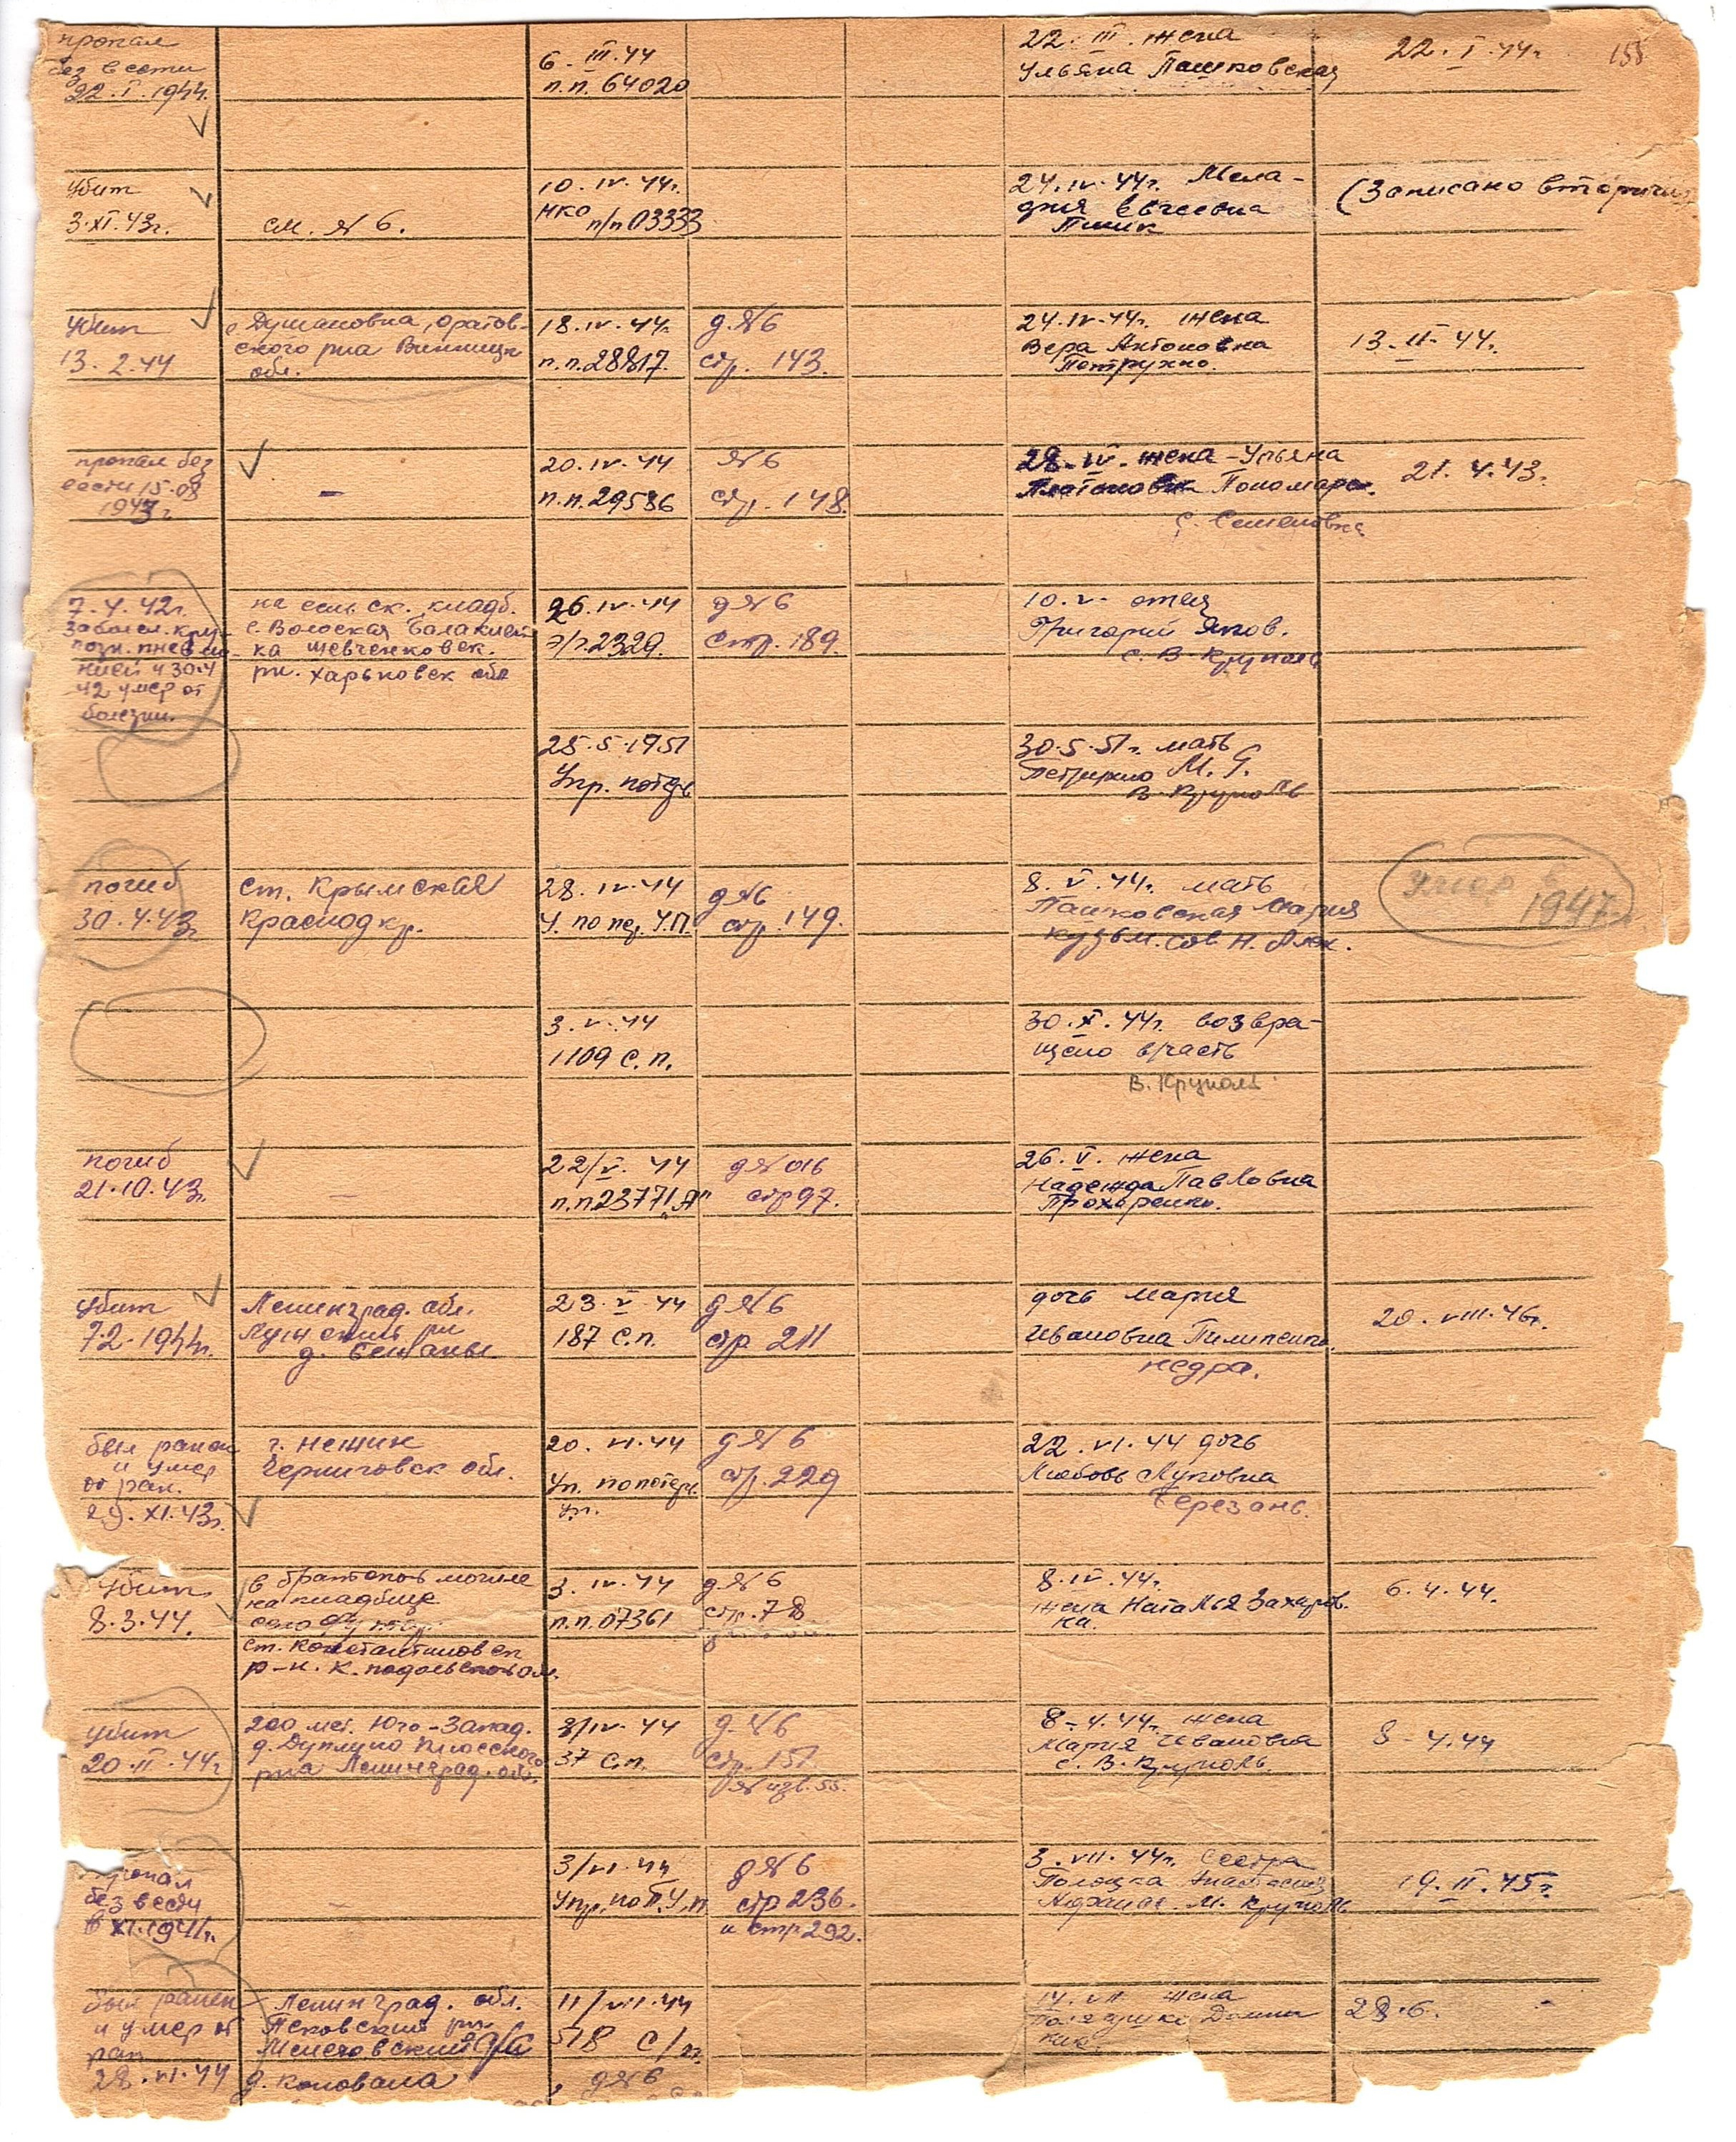 пропал
без вести
22.I.1944.
6.III.44
п.п. 64020
22.III. жена
Ульяна Пашковская
22.I.44г.
158
Убит
3.XI.43г.
см. №6.
10.IV.44г.
НКО п/п 03333
24.IV.44г. Мела-
ния Евсеевна
(Записано вторично
Убит
13.2.44
с Душановка, Оратов-
ского р-на Винницк
обл.
18.IV.44г.
п.п.28817.
д.№6
стр. 143.
24.IV.44г. жена
Вера Антоновна
Петрухно.
13.II.44г.
пропал без
вести 15.08
1943г
–
20.IV.44
п.п.29586
№6
стр. 148.
28.IV. жена-Ульяна
Платоновна Пономарен.
с. Семеновка
21.4.43г.
7.4.42г.
заболел. круп
позн. пневмо-
нией и 30.4
42 умер от
болезни.
на сельск. кладб.
с. Волоская Балаклей-
ка Шевченковск.
рн. Харьковск обл
26.IV.44
п.2329.
д №6
стр. 189.
10.V. отец
Григорий Яков.
с. В-Круполь
25.5.1951
Упр. потерь
30.5.51г. мать
М. Г.
В-Круполь
погиб
30.4.43г
ст. Крымская
Краснод кр.
28.IV.44
У. по пер. У.П.
д №6
стр. 149.
8.V.44г. мать
Пашковская Мария
Кузьм. сов. Н. Алек.
Умер в
1947г.
3.V.44
1109 с.п.
30.X.44г. возвра-
щено в часть
В. Круполь
погиб
21.10.43г.
–
22/V.44
п.п.23771"А"
д№ 016
стр 97.
26.V. жена
Надежда Павловна
Прохоренко.
Убит
7.2-1944г.
Ленинград. обл.
Лужский рн
23.V.44
187 с.п.
д №6
стр 211
дочь Мария
Ивановна Пилипенко.
Недра.
20.VIII.46г.
был ранен
и умер
от ран.
29.XI.43г.
г. Нежин
Черниговск обл.
20.VI.44
Уп. по потерь
уп.
д №6
стр. 229
22.VI.44 дочь
Любовь Луповна
Березань.
Убит
8.3.44.
в братской могиле
на кладбище
село
ст. Константиновск
р-н. К. подольской обл.
3.IV.44
п.п.07361
д №6
стр. 78
8.IV.44г.
жена Наталья Захаров-
на.
6.4.44.
убит
20.II.44г
200 мет. Юго-Запад.
д. Дуплино Плюсского
рна Ленинград. обл.
3/IV.44
37 с.п.
д.№6
стр. 151.
№ изв. 55.
8-4.44г. жена
Мария Ивановна
с. В. Круполь
8-4.44
пропал
без вести
в XI.1941г.
–
3/VI.44
Упр. по П.У.п
д №6
стр 236.
и стр 292.
3.VII.44г. сестра
Полоцка Анастасия
Афанас. М. Круполь
19.II.45г.
был ранен
и умер от
ран
28.VI.44
Ленинград. обл.
Псковский рн
д. Коновала
11/VII.44
518 с/п
д №6
14.VII жена
28.6.